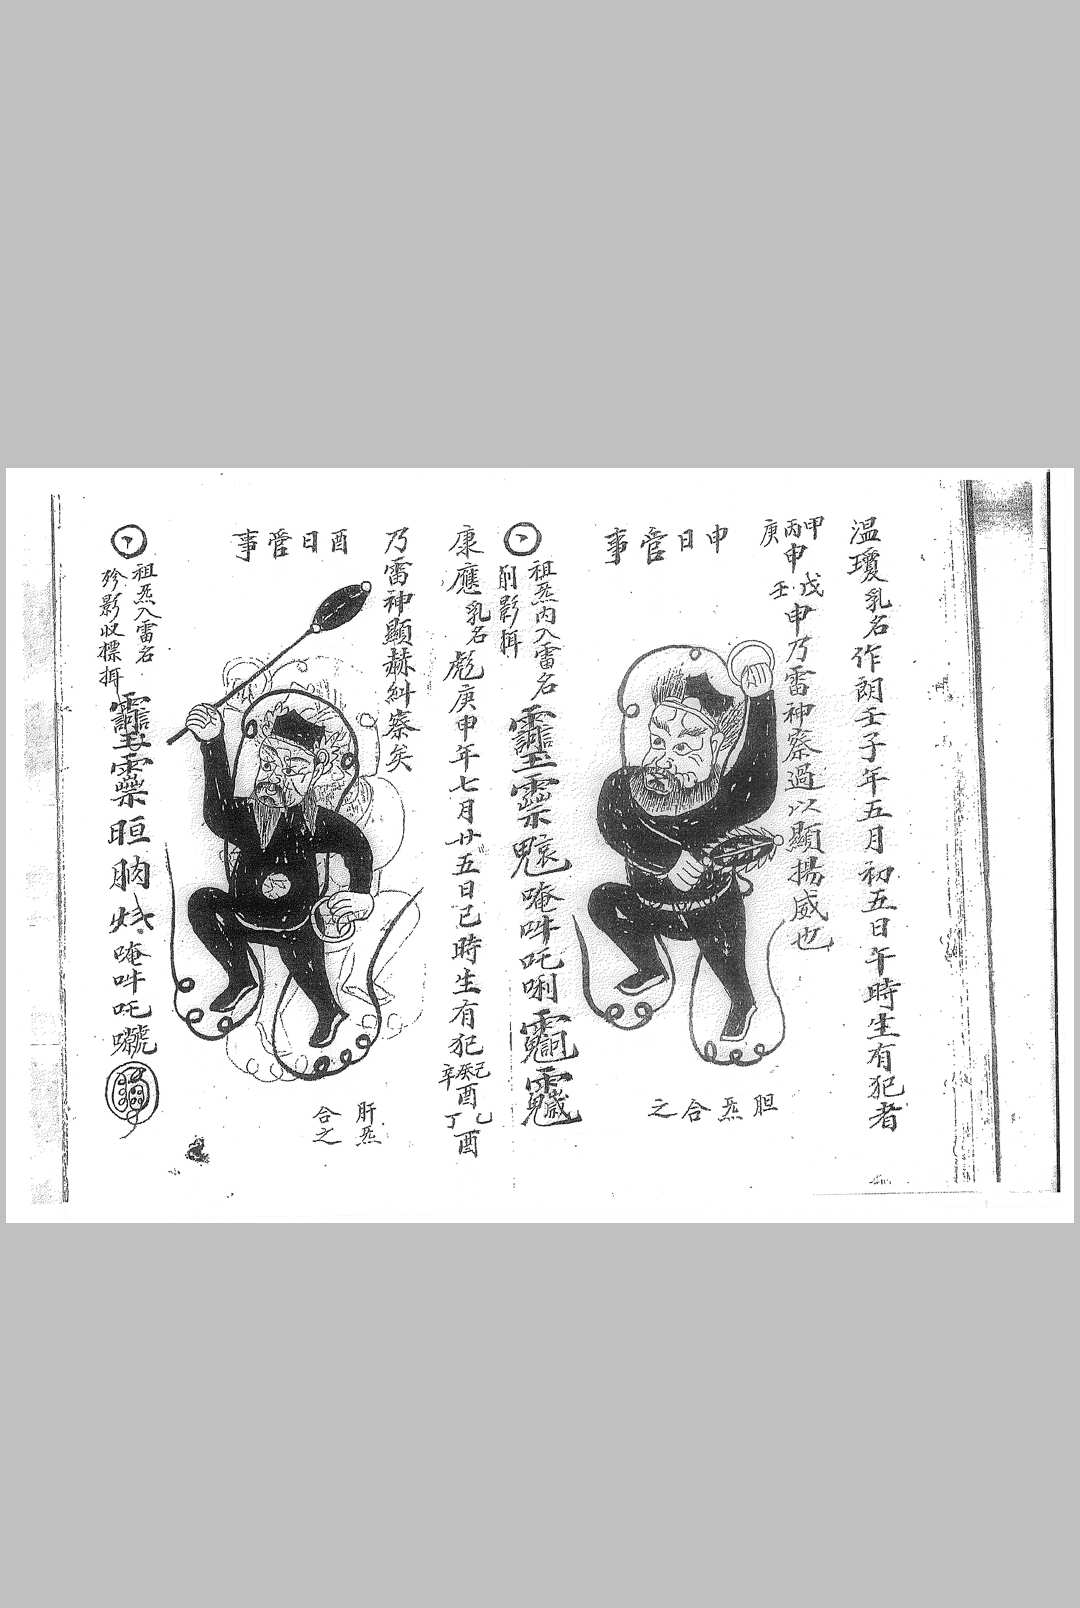 温瓊乳名作朗壬子年五月初五日午時生有犯者
甲
丙申
庚
戊
壬申乃雷神察過以顯揚威也
申日管事
胆炁合之
祖炁内入雷名
削影揖
唵吽吒唎
康應乳名彪庚申年七月廿五日巳時生有犯
己
癸酉
辛
乙
丁酉
乃雷神顯赫糾察矣
酉日管事
肝炁
合之
祖炁入雷名
殄影收標揖
唵吽吒